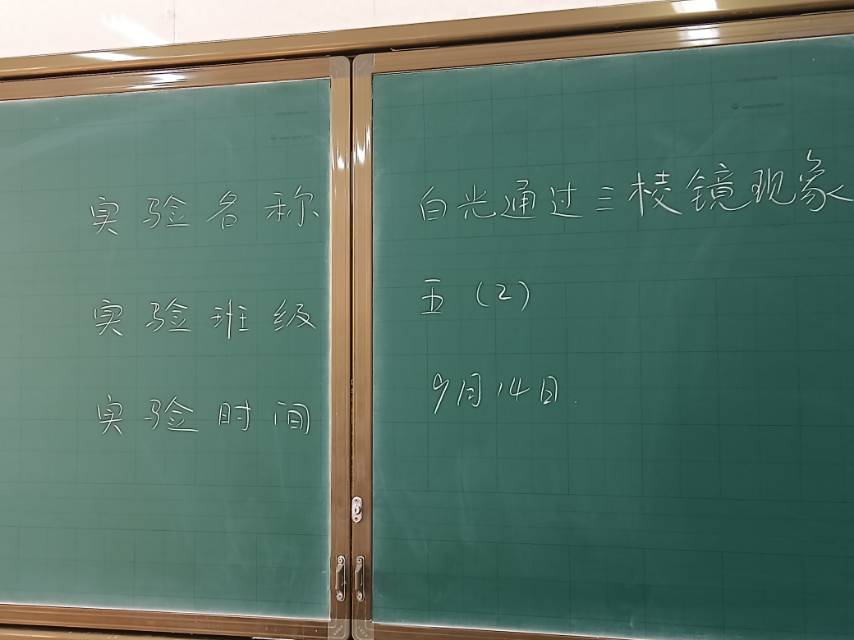 实验名称 白光通过三棱镜现象
实验班级 五(2)
实验时间 9月14日.